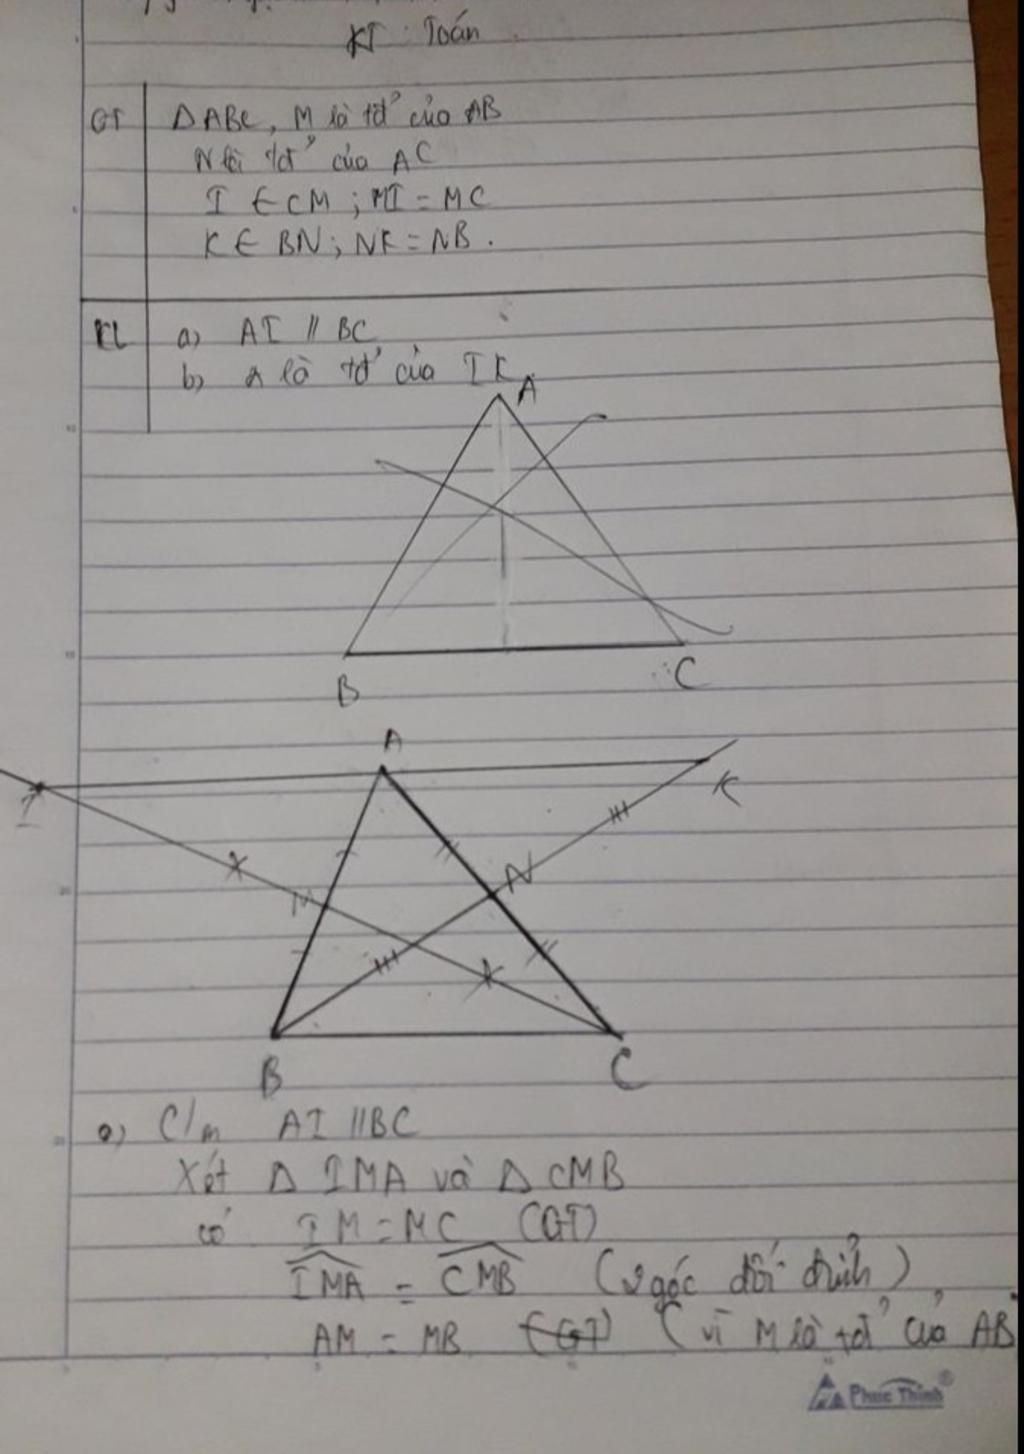 KT : Toán
GT ΔABC, M là tđ' của AB
N là tđ' của AC
I ∈ CM ; MI = MC
K ∈ BN ; NK = NB .
KL a) AI // BC
b) A là tđ' của IK
A
B C
A
I K
M N
B C
a) C/m AI // BC
Xét Δ IMA và Δ CMB
có IM = MC (GT)
IMA = CMB (2 góc đối đỉnh)
AM = MB (GT) (vì M là tđ' của AB
Phuc Thinh®